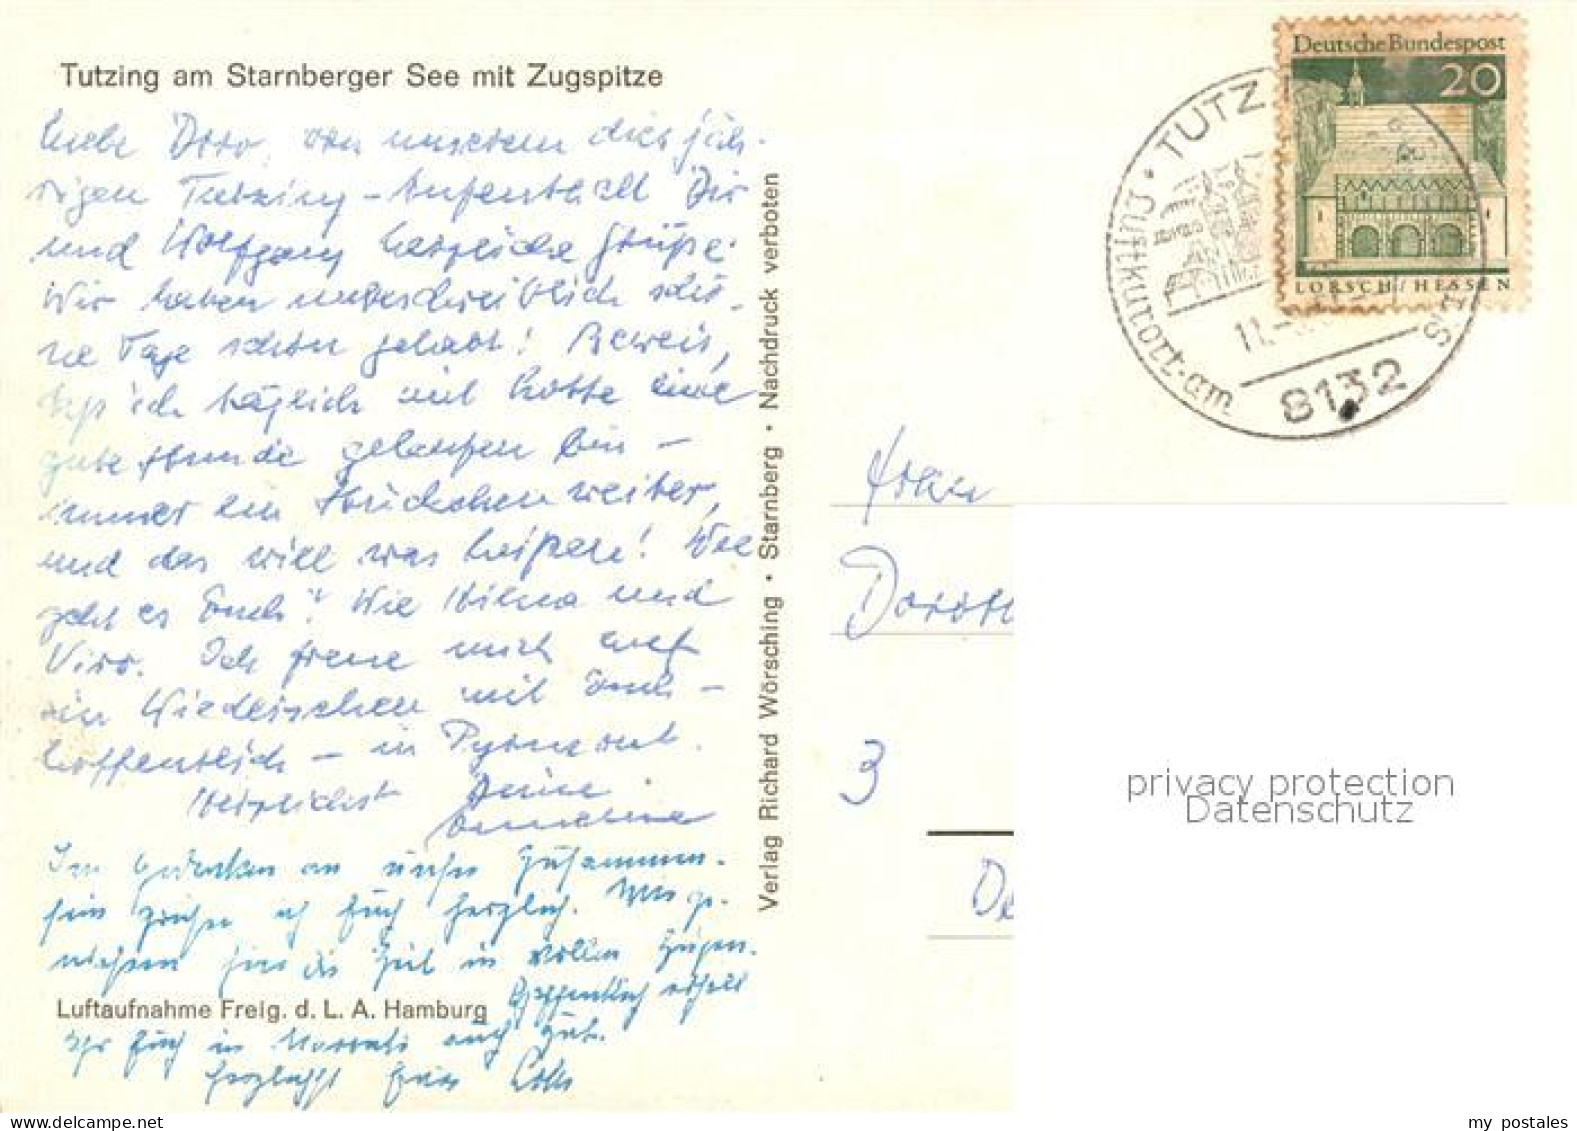 Tutzing am Starnberger See mit Zugspitze
Liebe Doro, von unserem dies jäh-
rigen Tutzing-Aufenthalt Dir
und Wolfgang herzliche Grüße.
Wir haben unbeschreiblich schö-
ne Tage schon gehabt! Beweis,
ich täglich mit Lotte eine
gute Stunde gelaufen bin –
immer ein Stückchen weiter,
und das will was heißen! Wie
geht es Euch? Wie und
Ich freue mich auf
ein Wiedersehen mit Euch –
hoffentlich – in Pyrmont.
Herzlichst Deine
Im Gedenken an unser Zusammen-
sein grüße ich Euch herzlich. Wir ge-
niessen hier die Zeit in vollen Zügen.
Hoffentlich erholt
Ihr Euch in auch gut.
Herzlichst Eure Lotte
Luftaufnahme Freig. d. L. A. Hamburg
Verlag Richard Wörsching • Starnberg • Nachdruck verboten
Deutsche Bundespost
20
LORSCH/HESSEN
TUTZ
Luftkurort am
11.
8132
Doroth
3
De
privacy protection
Datenschutz
my postales